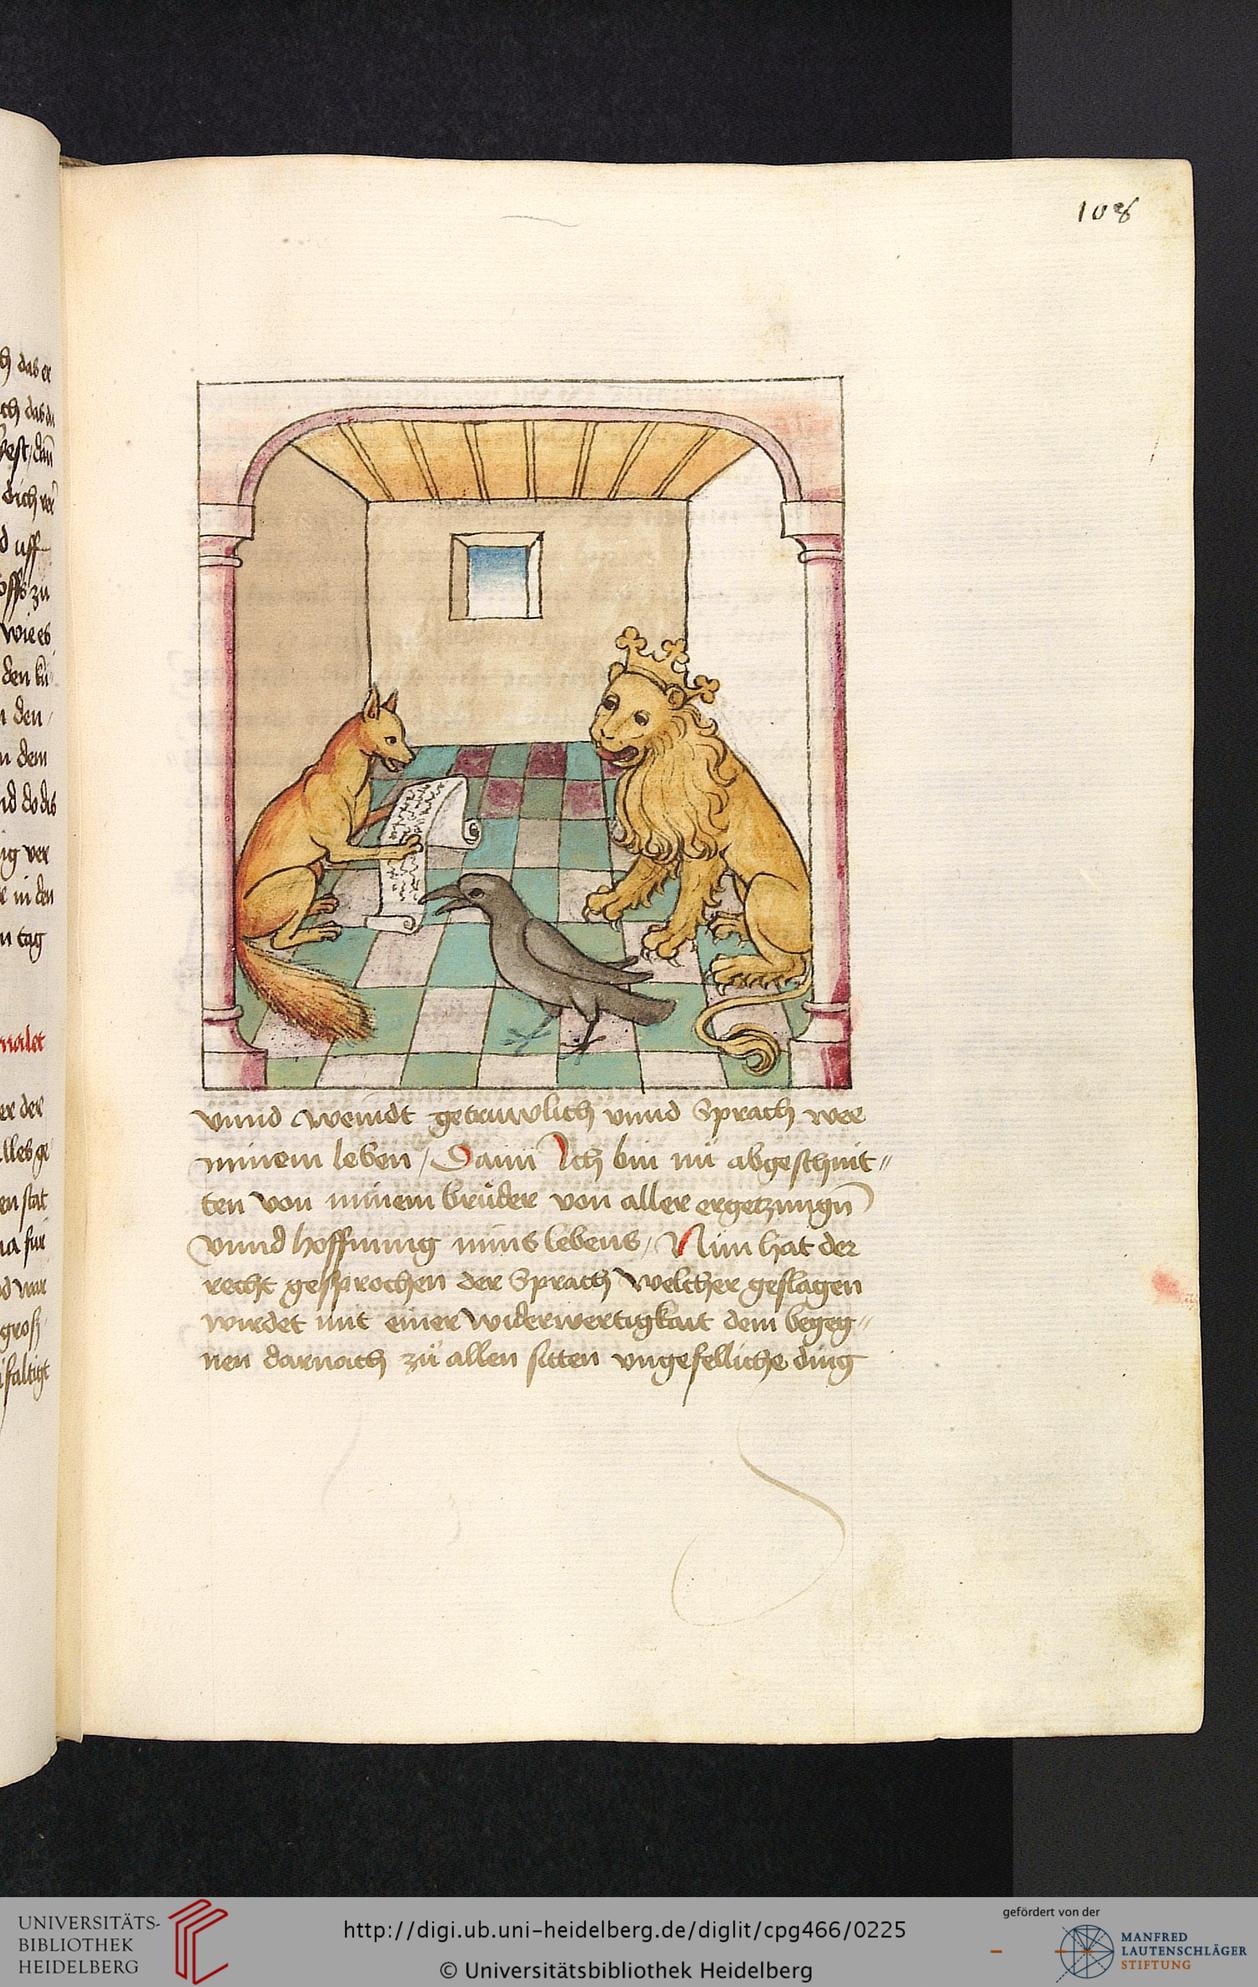 108
ch das er
ch das du
vest / dan̄
dich ver
d uff
hoffs zu
wie es
den kü
n den /
n dem
nd do dis
ng ver
e in den
n tag
er der
lles ge
en stat
na für
d war
groß /
faltigt
vnnd weindt getruwlich vnnd Sprach wee
minem leben / Dann Ich bin nu abgeschnit〃
ten von minem brüder von aller ergetzungn̄
vnnd hoffnung mins lebens / Nun hat der
recht gesprochen der Sprach welcher geslagen
wirdet mit einer widerwertigkait dem begeg〃
nen darnach zů allen sitten vngefelliche ding
UNIVERSITÄTS-
BIBLIOTHEK
HEIDELBERG
http://digi.ub.uni-heidelberg.de/diglit/cpg466/0225
© Universitätsbibliothek Heidelberg
gefördert von der
MANFRED
LAUTENSCHLÄGER
STIFTUNG